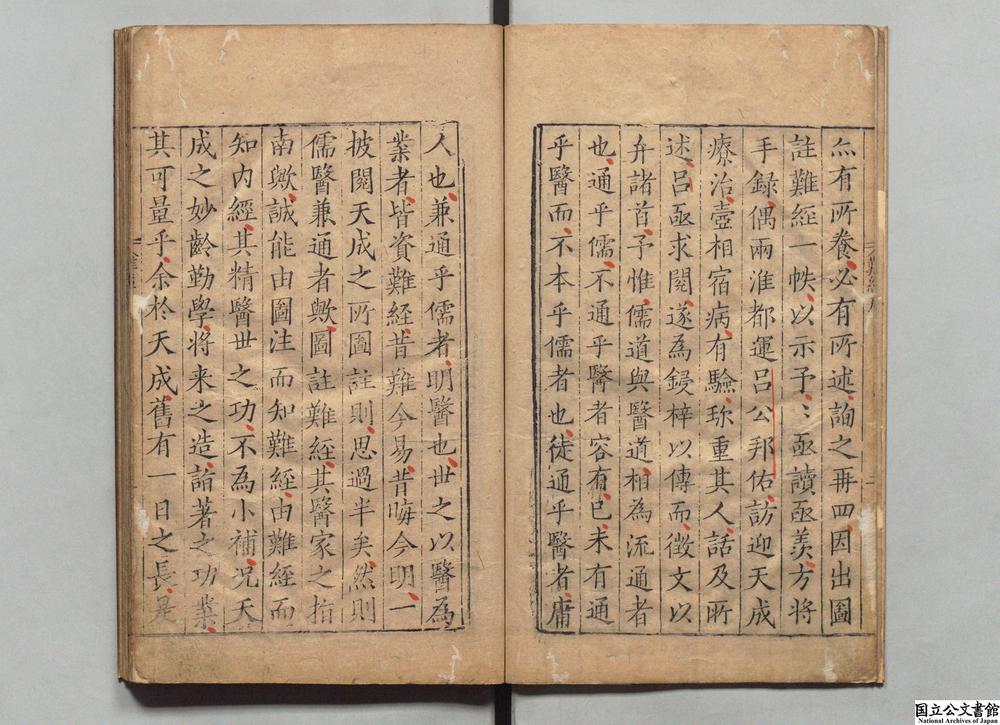 亦有所養必有所述詢之再四因出圖
註難經一帙以示予〻亟讀亟羨方將
手録偶兩淮都運吕公邦佑訪迎天成
療治壺相宿病有驗珎重其人話及所
述吕亟求閱遂為鋟梓以傳而徵文以
弁諸首予惟儒道與醫道相為流通者
也通乎儒不通乎醫者容有已未有通
乎醫而不本乎儒者也徒通乎醫者庸
人也兼通乎儒者明醫也世之以醫為
業者皆資難經昔難今易昔晦今明一
披閱天成之所圖註則思過半矣然則
儒醫兼通者歟圖註難經其醫家之指
南歟誠能由圖注而知難經由難經而
知内經其精醫世之功不為小補况天
成之妙齡勤學将来之造詣著之功業
其可量乎余於天成舊有一日之長是
國立公文書館
National Archives of Japan